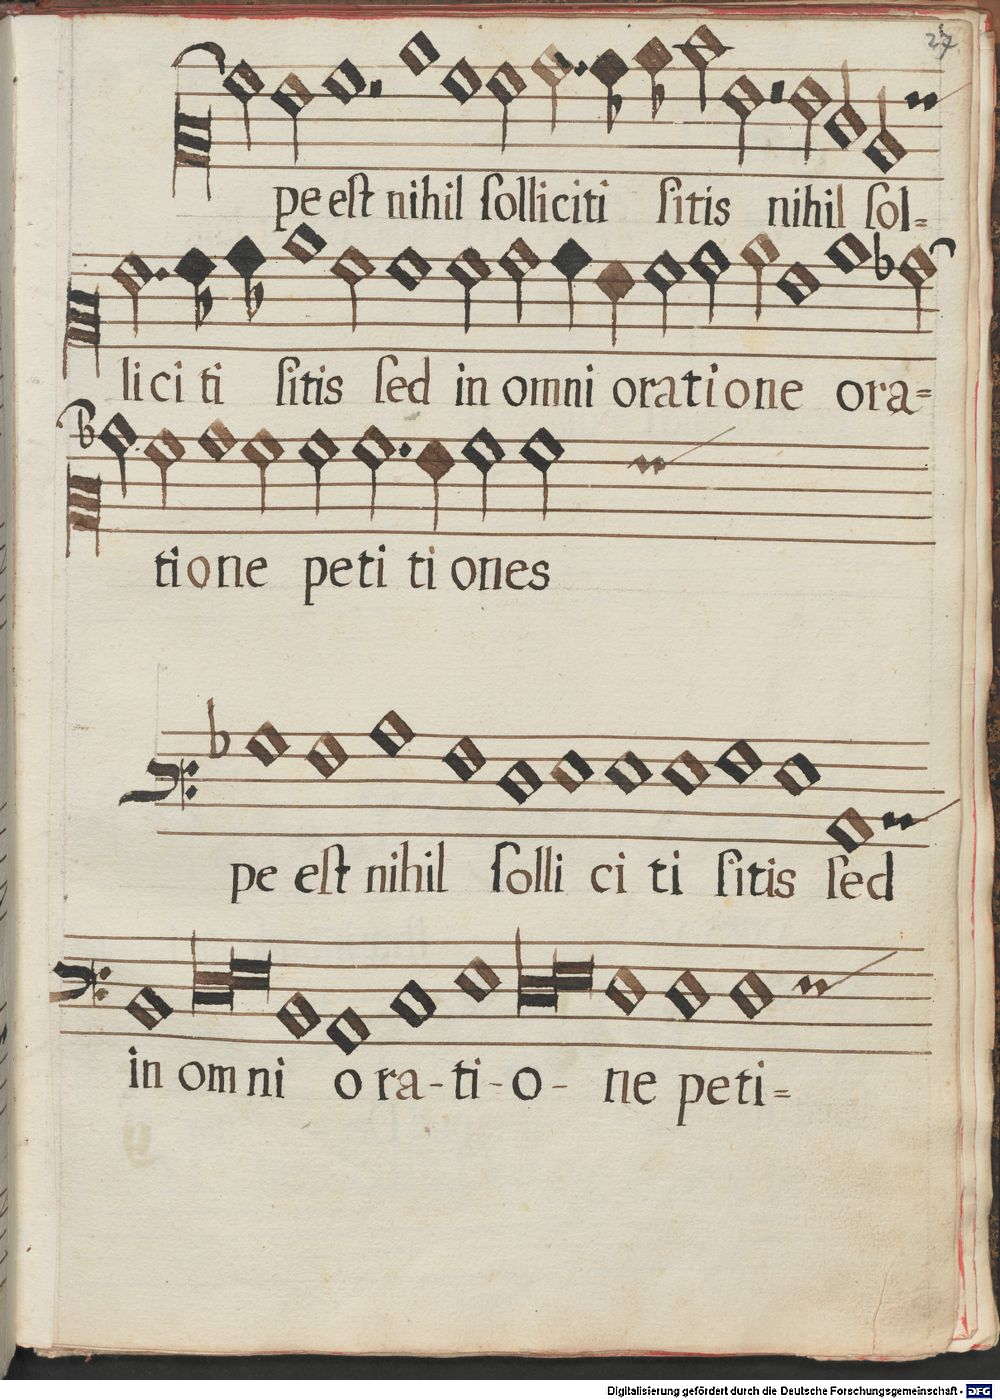 27
pe est nihil ſolliciti ſitis nihil ſol=
liciti ſitis ſed in omni oratione ora=
tione petitiones
pe eſt nihil ſolli ci ti ſitis ſed
in omni o ra-ti-o- ne peti=
Digitalisierung gefördert durch die Deutsche Forschungsgemeinschaft - DFG